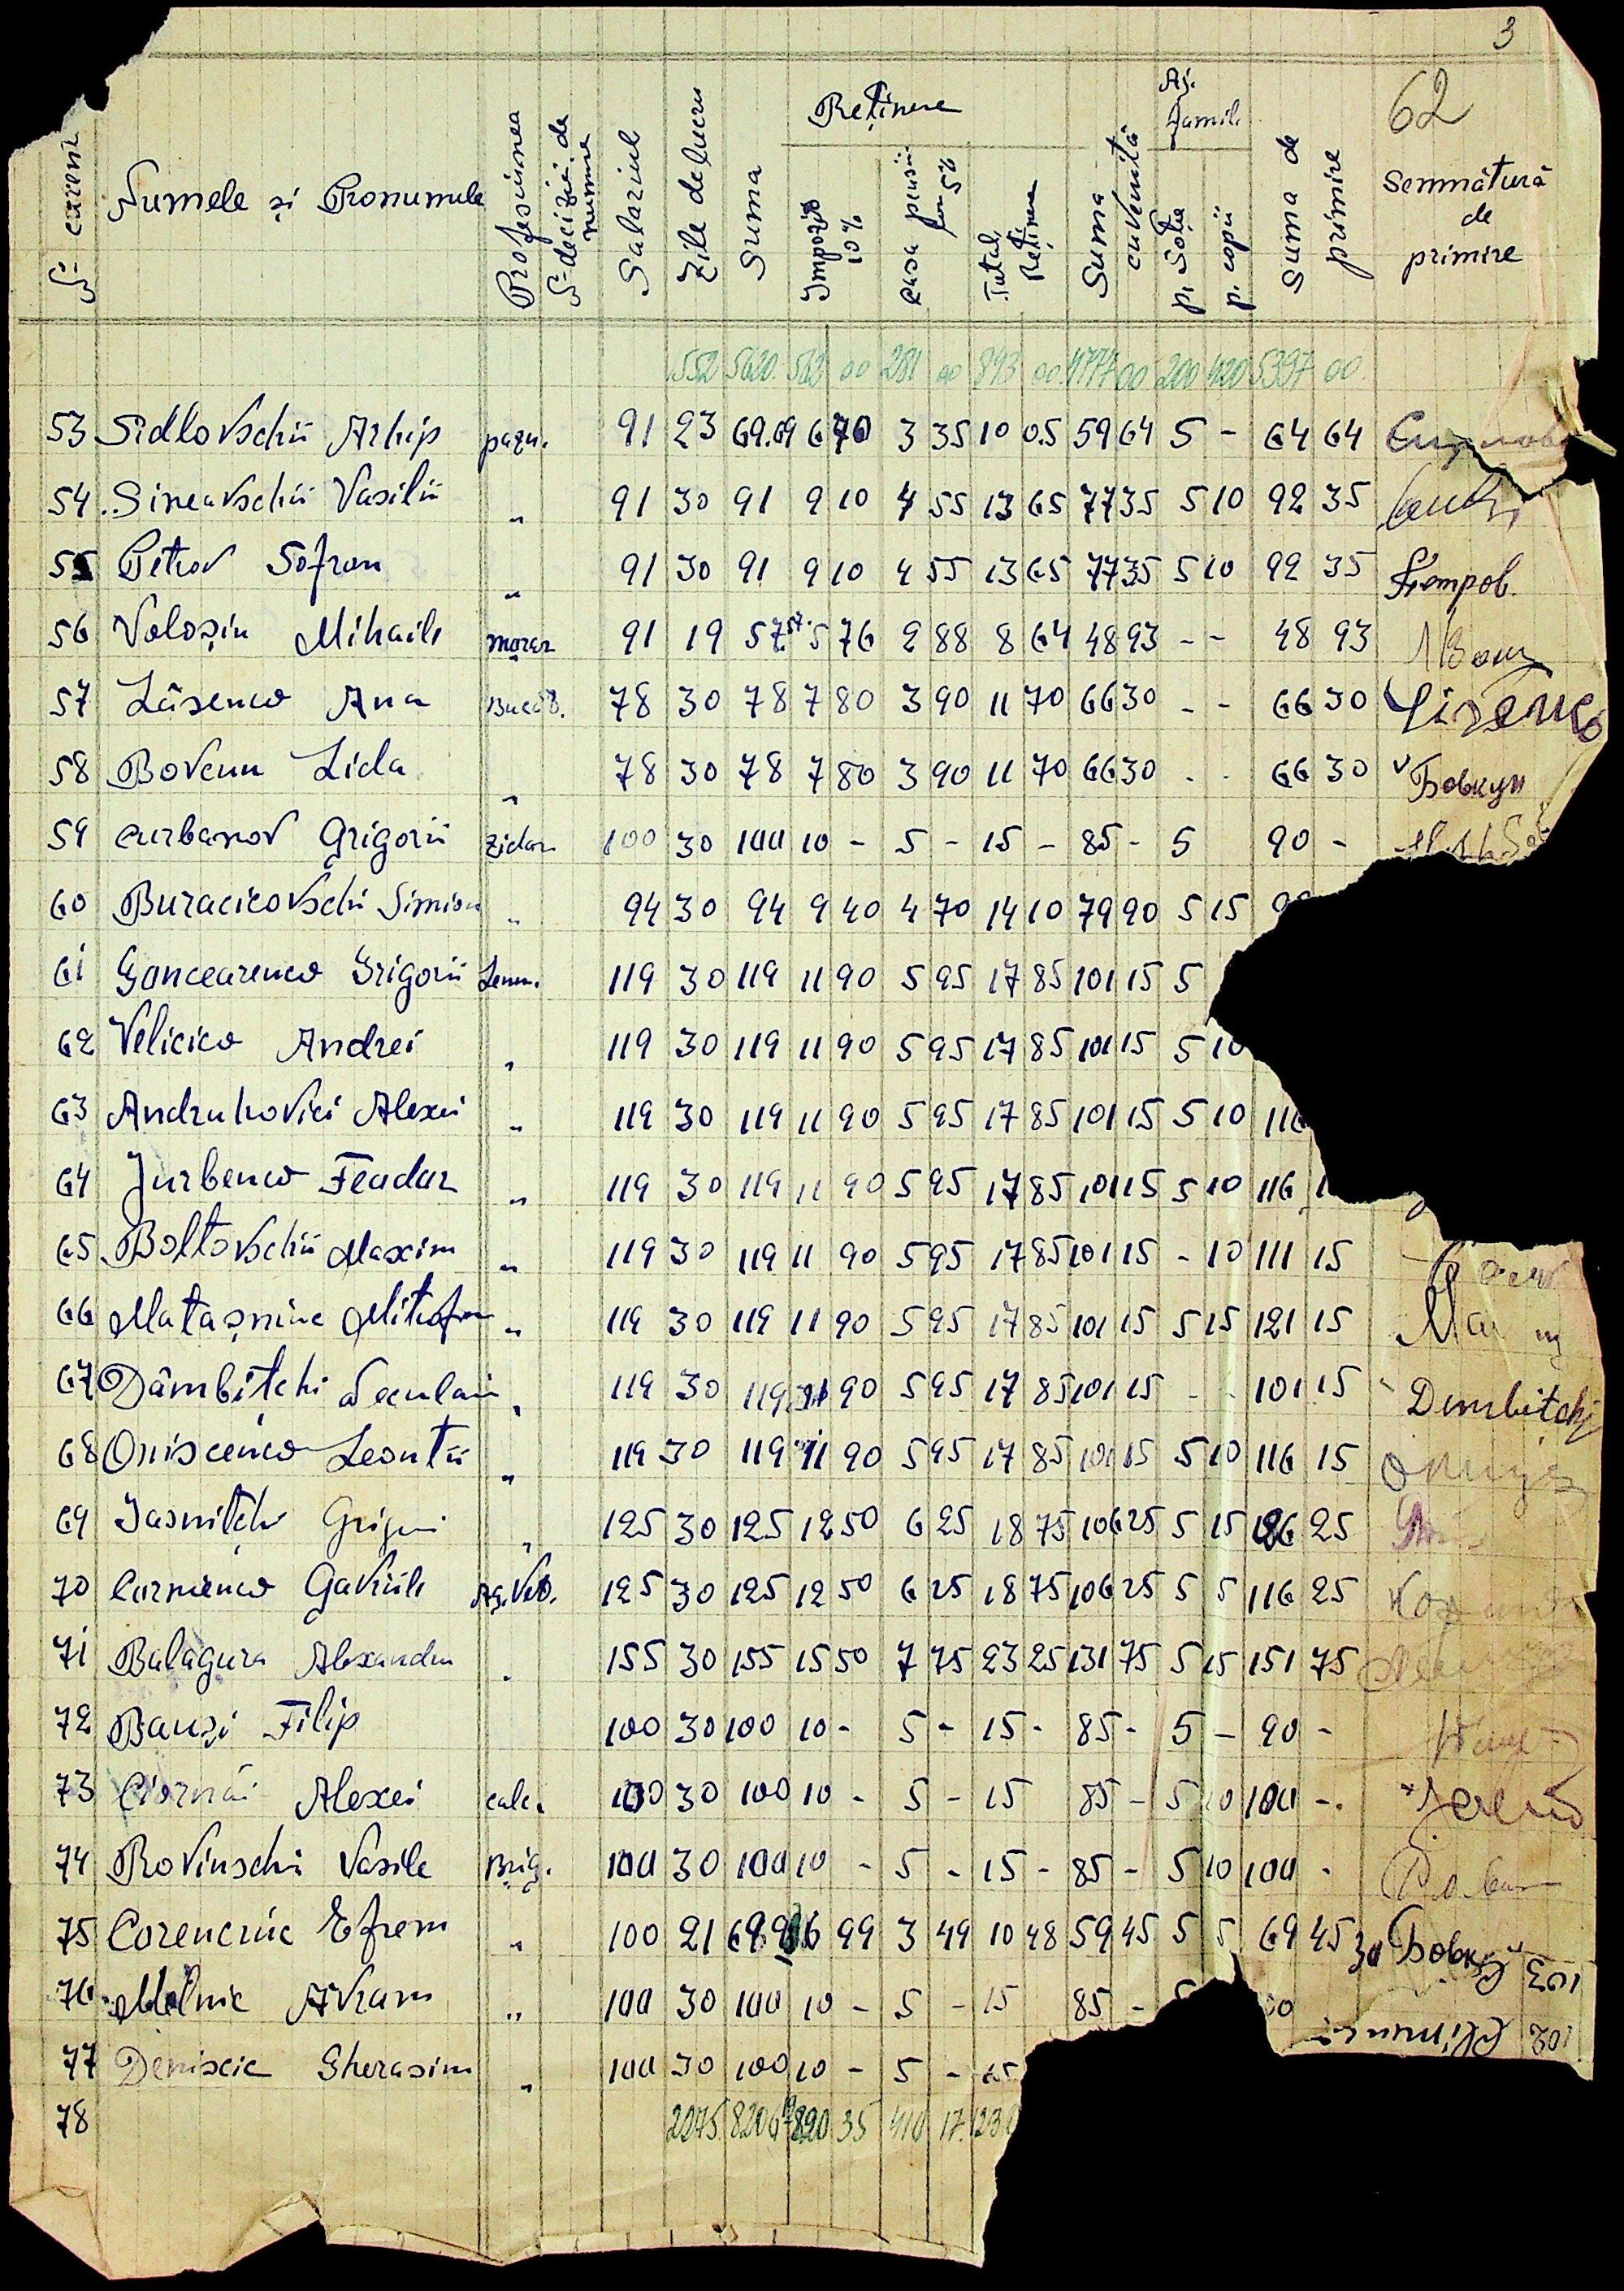 3
62
№ curent
Numele și Pronumele
Profesiunea
№ deciziei de numire
Salariul
Zile de lucru
Suma
Reținere
Impozit 10%
casa pensii 5%
Total Rețineri
Suma cuvenită
Aj. famili.
p. Soție
p. copii
Suma de primire
Semnătură de primire
552 5620. 562 00 281 00 843 00. 4777 00 200 420 5397 00.
53 Sidlovschii Arhip pazn. 91 23 69.69 6 70 3 35 10 05 59 64 5 - 64 64
54 Sineavschii Vasilii " 91 30 91 9 10 4 55 13 65 77 35 5 10 92 35
55 Petrov Sofron " 91 30 91 9 10 4 55 13 65 77 35 5 10 92 35 Петров.
56 Voloșin Mihail morar 91 19 57 57. 5 76 2 88 8 64 48 93 - - 48 93
57 Lâsenco Ana Bucăt. 78 30 78 7 80 3 90 11 70 66 30 - - 66 30
58 Bovcun Lida " 78 30 78 7 80 3 90 11 70 66 30 - - 66 30 Бовкун
59 Curbanov Grigorii Zidar 100 30 100 10 - 5 - 15 - 85 - 5 90 -
60 Buracicovschi Simion " 94 30 94 9 40 4 70 14 10 79 90 5 15
61 Goncearenco Grigorii Lemn. 119 30 119 11 90 5 95 17 85 101 15 5
62 Velicico Andrei " 119 30 119 11 90 5 95 17 85 101 15 5 10
63 Andruhovici Alexei " 119 30 119 11 90 5 95 17 85 101 15 5 10 116
64 Jurbenco Feodor " 119 30 119 11 90 5 95 17 85 101 15 5 10 116 1
65 Boltovschii Maxim " 119 30 119 11 90 5 95 17 85 101 15 - 10 111 15
66 Matașniuc Mitrofan " 119 30 119 11 90 5 95 17 85 101 15 5 15 121 15
67 Dâmbițchi Neculai " 119 30 119 11 90 5 95 17 85 101 15 - - 101 15 Dimbitchi
68 Oniscenco Leontii " 119 30 119 11 90 5 95 17 85 101 15 5 10 116 15
69 Iasnițchi Grigori " 125 30 125 12 50 6 25 18 75 106 25 5 15 126 25
70 Cornienco Gavriil Ag. Vet. 125 30 125 12 50 6 25 18 75 106 25 5 5 116 25
71 Balagura Alexandru " 155 30 155 15 50 7 75 23 25 131 75 5 15 151 75
72 Bauși Filip 100 30 100 10 - 5 - 15 - 85 - 5 - 90 -
73 Ciornâi Alexei calc. 100 30 100 10 - 5 - 15 85 - 5 10 100 -.
74 Rovinschi Vasile Brig. 100 30 100 10 - 5 - 15 - 85 - 5 10 100 -
75 Corenciuc Efrem " 100 21 69.9 6 99 3 49 10 48 59 45 5 5 69 45 за Бовкун
103
76. Melnic Avram " 100 30 100 10 - 5 - 15 85 - 5
102
77 Deniscic Gherasim " 100 30 100 10 - 5 - 15
78 2275. 8206 820 35 410 17.